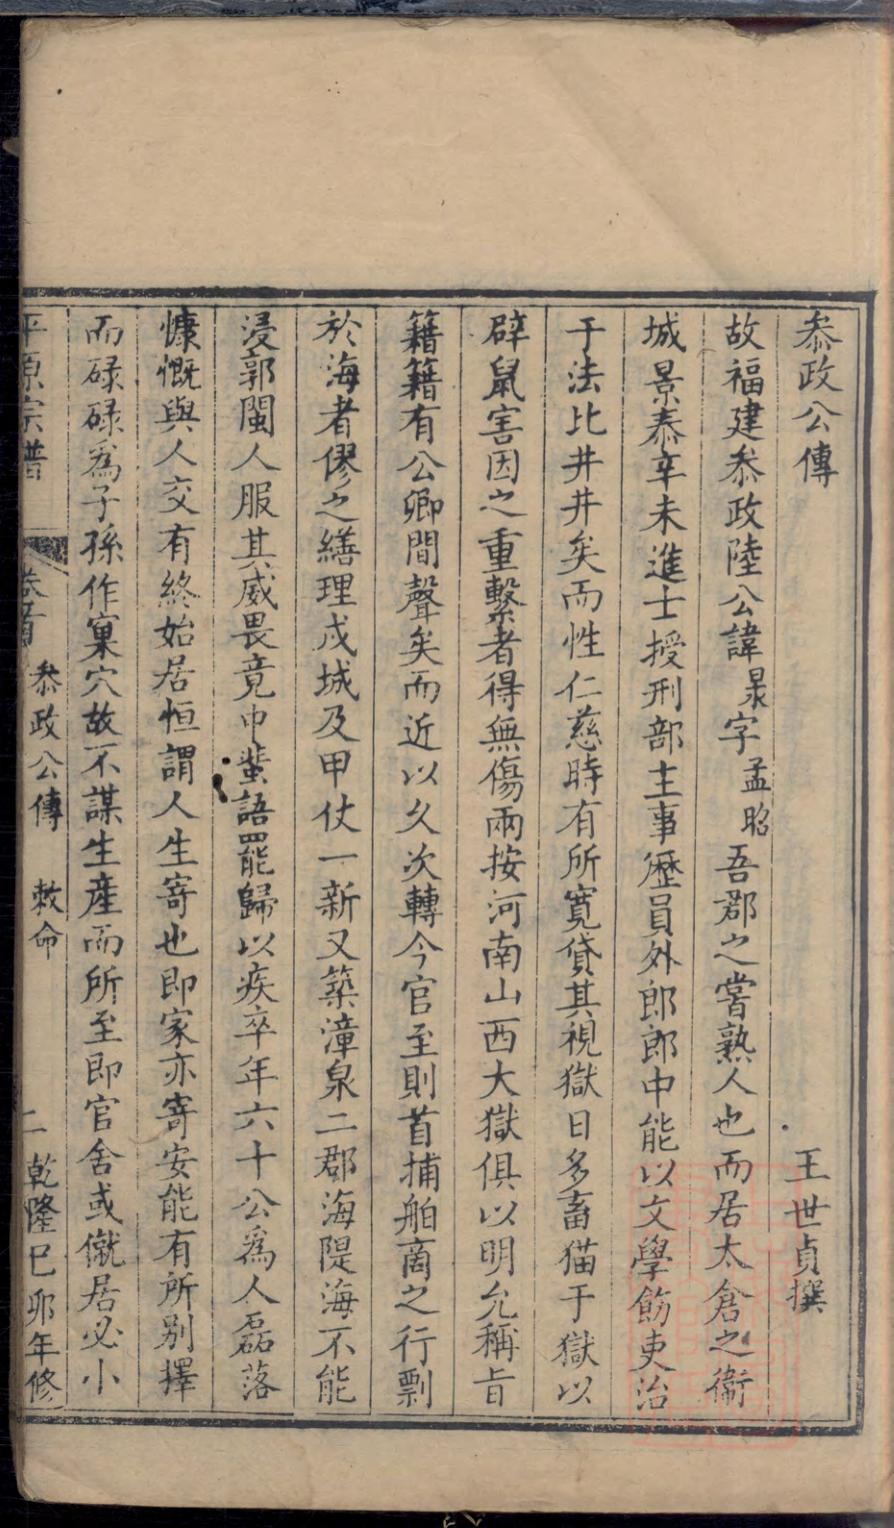 叅政公傳　王世貞撰
故福建叅政陸公諱㫤字孟昭吾郡之嘗熟人也而居太倉之衛
城景泰辛未進士授刑部主事歷員外郎郎中能以文學飭吏治
于法比井井矣而性仁慈時有所寛貸其視獄日多畜猫于獄以
辟鼠害因之重繫者得無傷兩按河南山西大獄俱以明允稱旨
籍籍有公卿間聲矣而近以久次轉今官至則首捕舶商之行剽
於海者僇之繕理戍城及甲仗一新又築漳泉二郡海隄海不能
浸郭閩人服其威畏竟中蜚語罷歸以疾卒年六十公爲人磊落
慷慨與人交有終始居恒謂人生寄也即家亦寄安能有所别擇
而碌碌爲子孫作窠穴故不謀生產而所至即官舍或僦居必小
平原宗譜　卷首　叅政公傳　敕命　二　乾隆巳卯年修